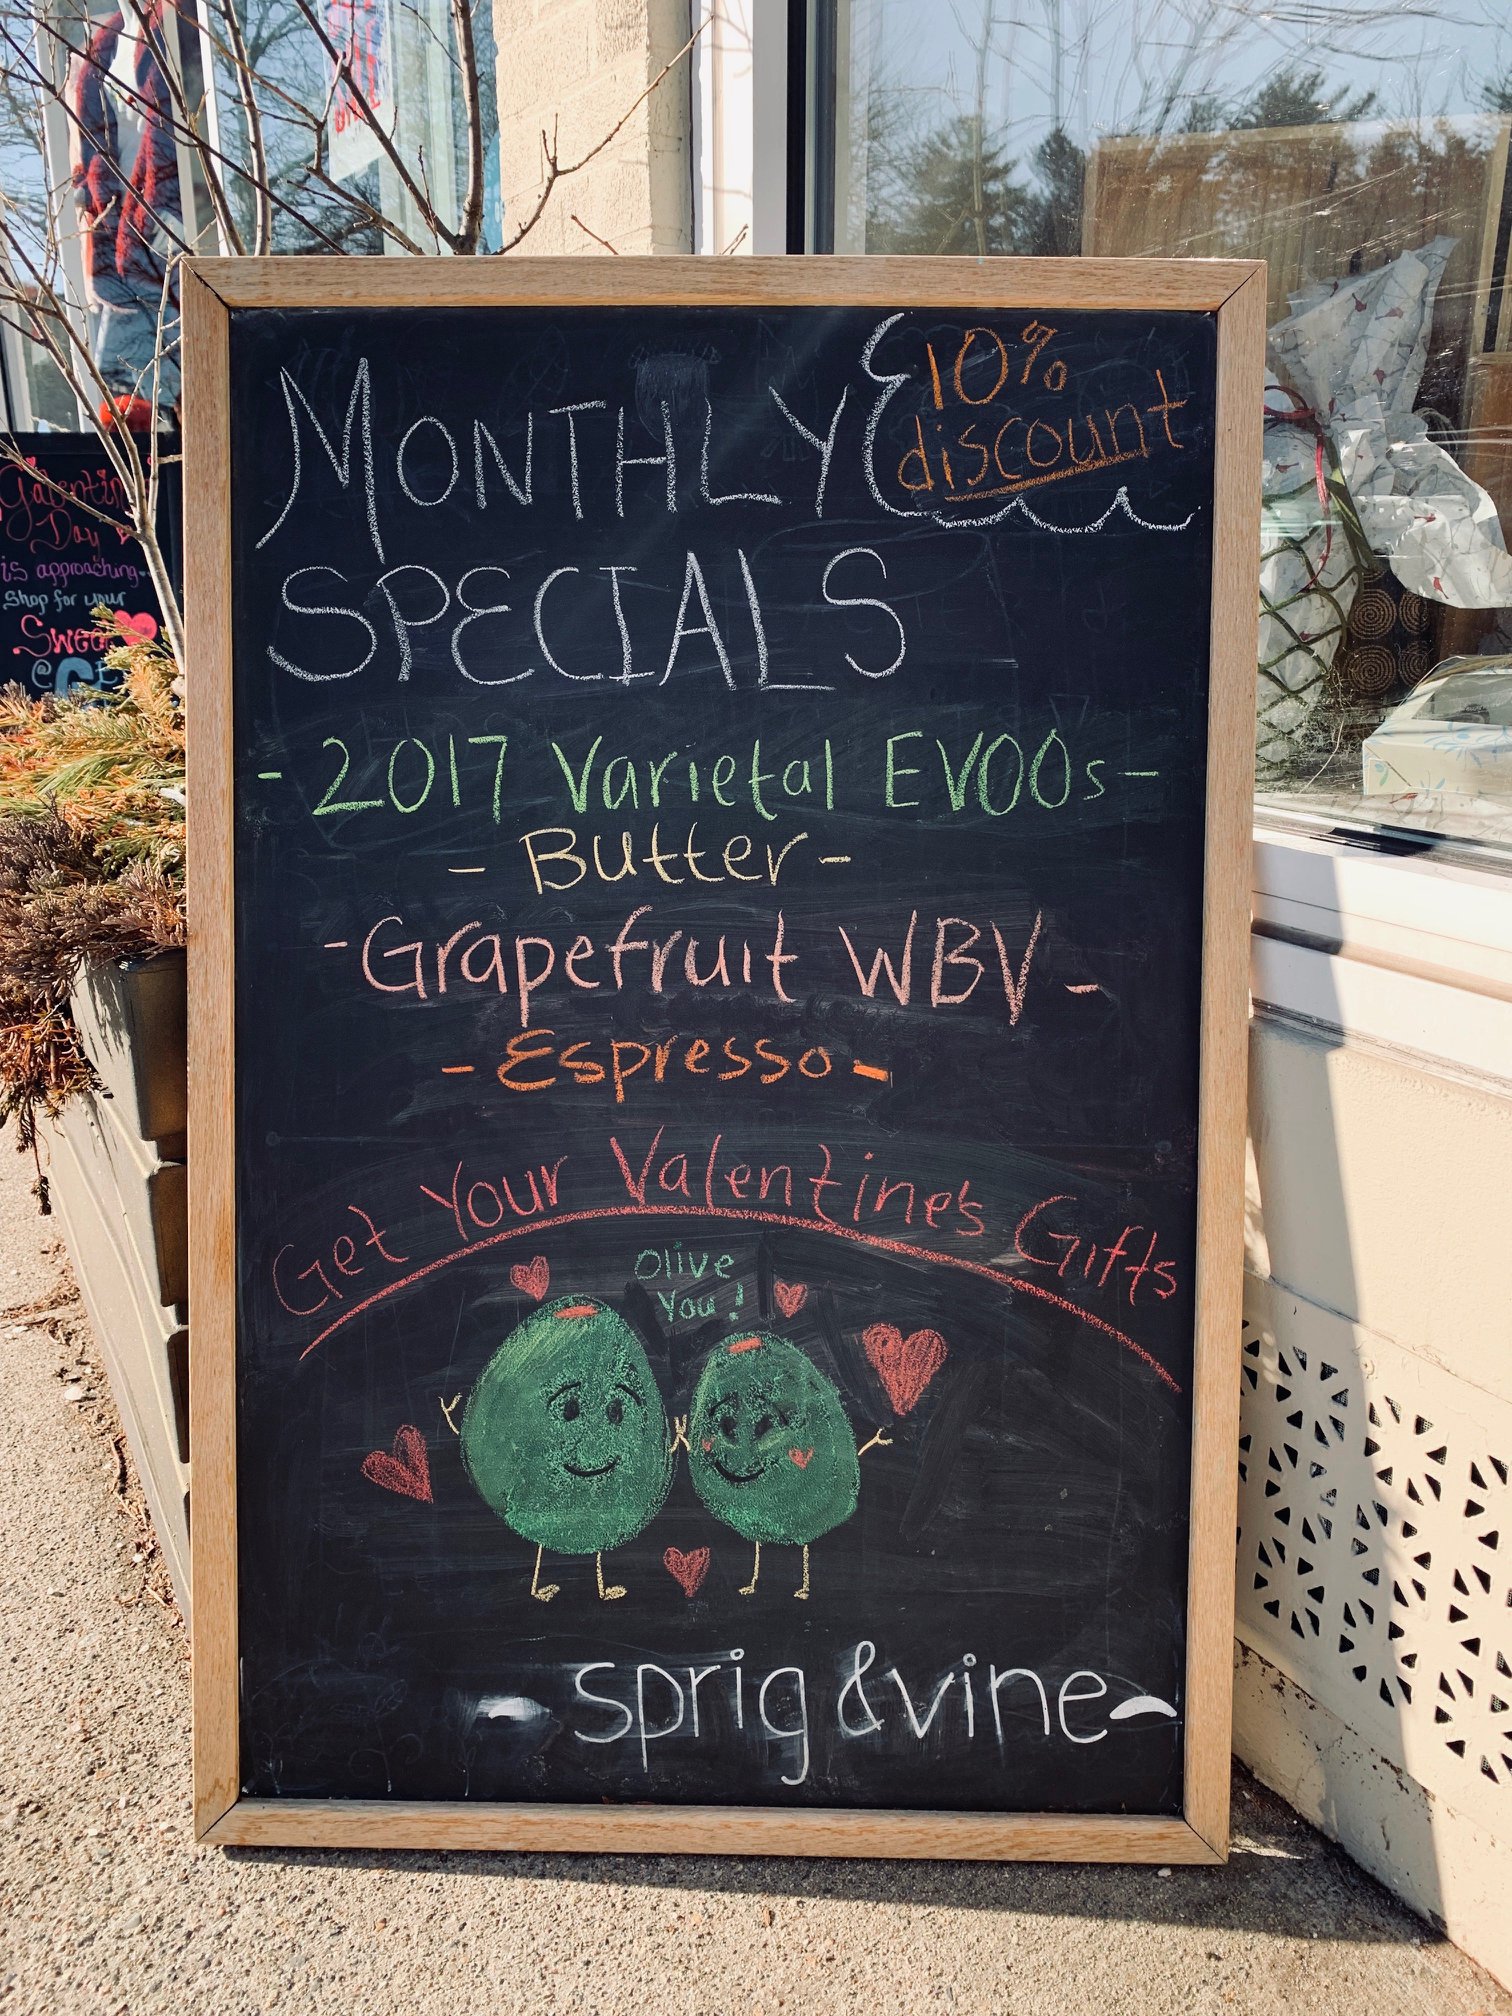 MONTHLY
10%
discount
SPECIALS
- 2017 Varietal EVOOs -
- Butter -
- Grapefruit WBV -
- Espresso -
Get Your Valentine's Gifts
Olive
You!
- sprig & vine -
Day
is approaching
Shop for your